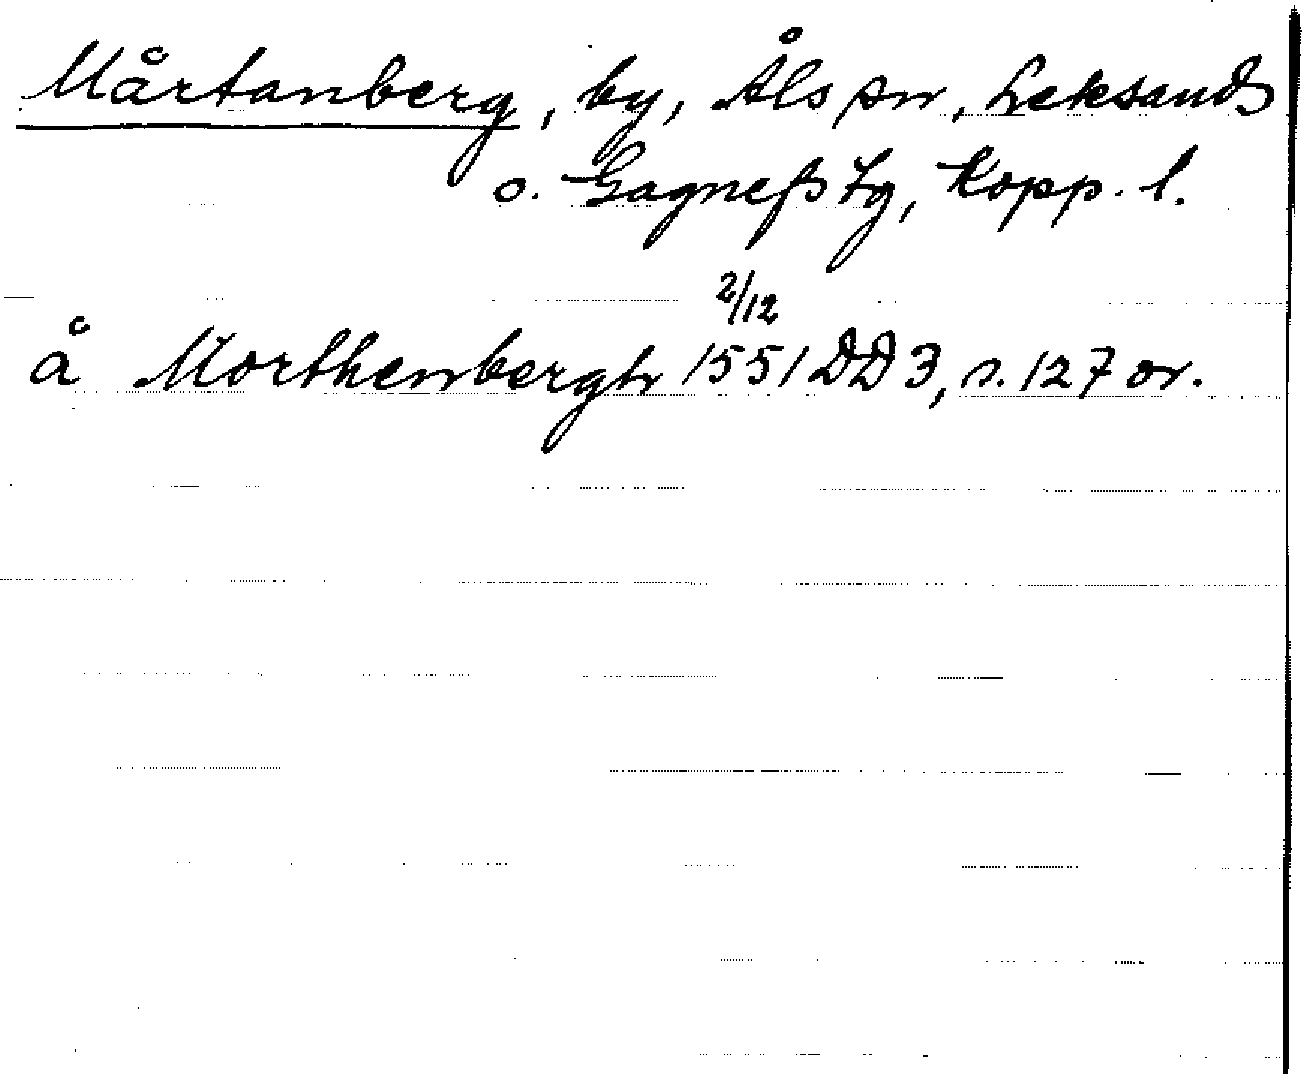 Mårtanberg, by, Åls sn, Leksands
o. Gagnefs tg, Kopp. l.
å Morthenbergh 2/12 1551 DD 3, s. 127 or.